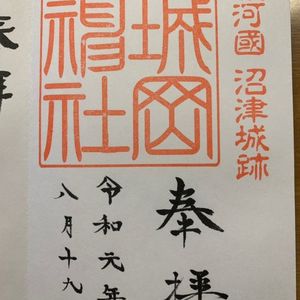 河國 沼津城跡
城岡
神社
奉拝
令和元年
八月十九